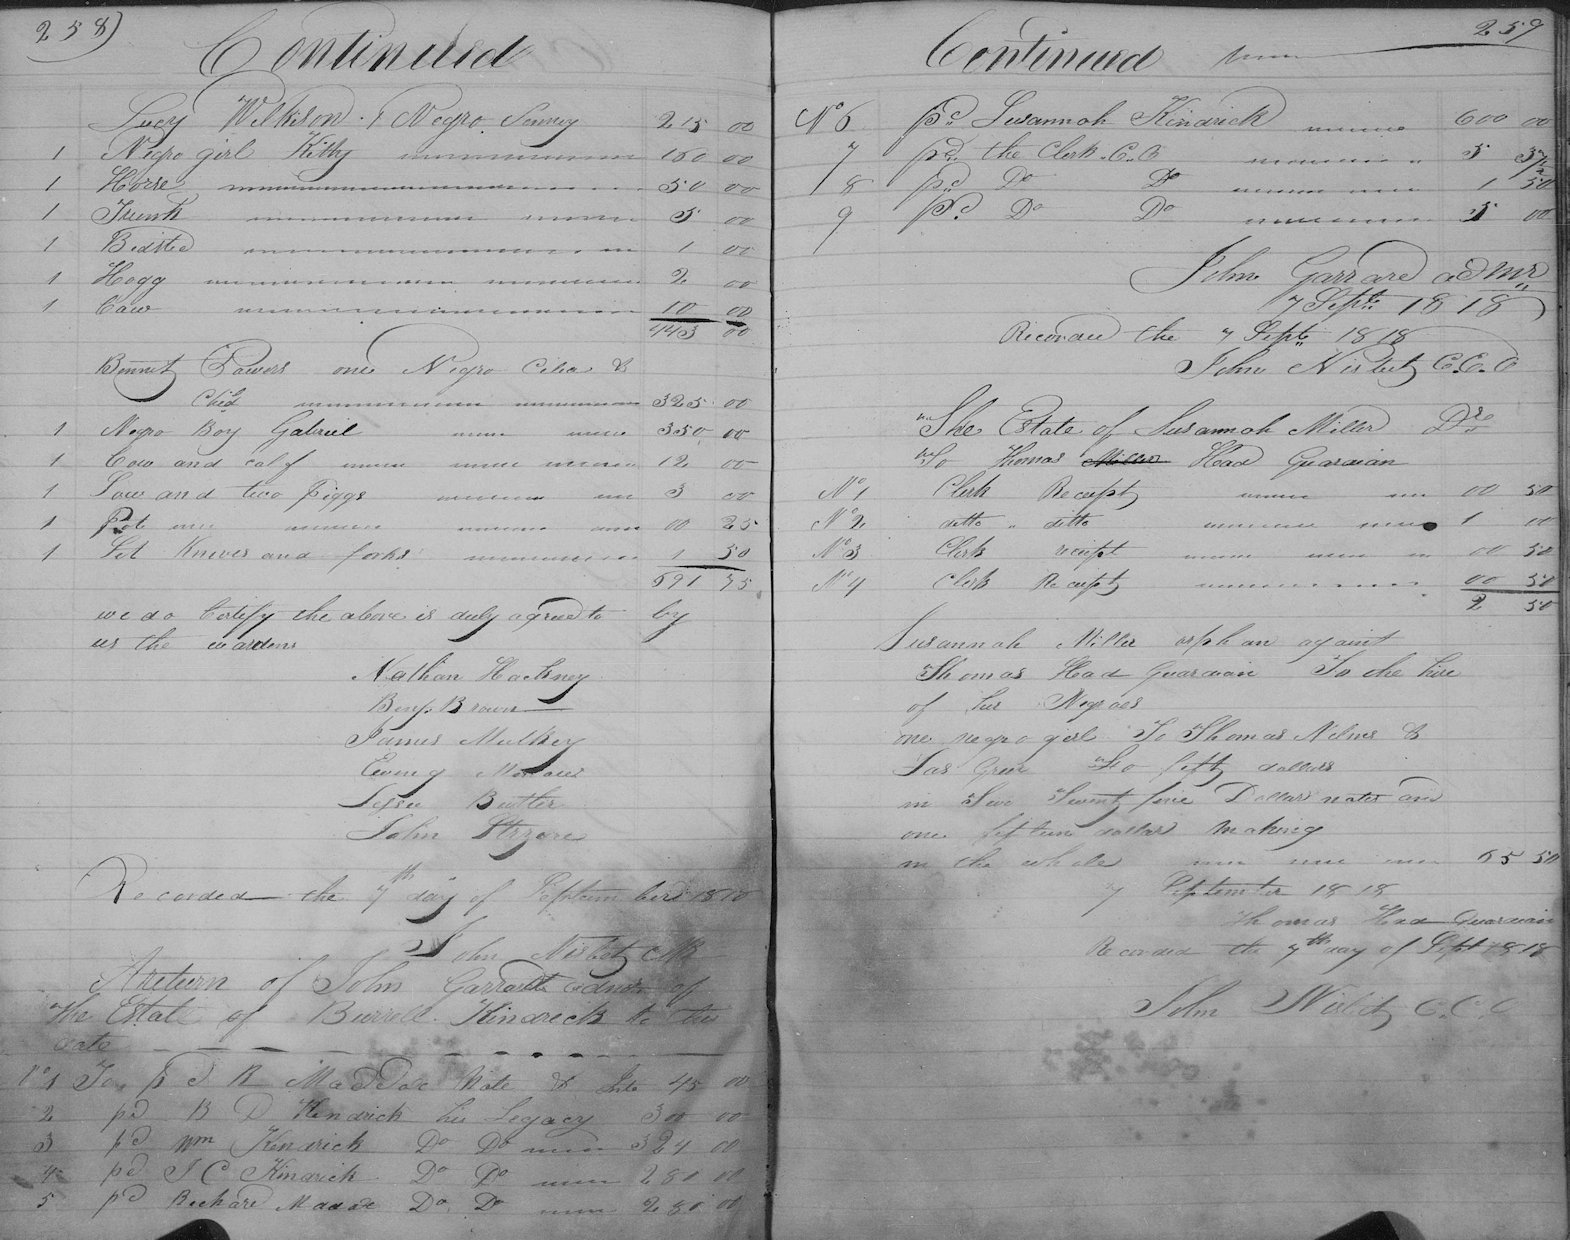 258)
Continued
Lucy Wilkison 1 Negro Penney 215 00
1 Negro girl Kitty 160 00
1 Horse 50 00
1 Trunk 5 00
1 Bedsted 1 00
1 Hogg 2 00
1 Cow 10 00
443 00
Bennet Powers one Negro Celia &
Child 325 00
1 Negro Boy Gabriel 350 00
1 Cow and calf 12 00
1 Sow and two piggs 3 00
1 Pot 00 25
1 Set Knives and forks 1 50
691 75
we do Certify the above is duly agreed to by
us the wardens
Nathan Hackney
Benj. Brown
James Mulkey
Ewing
Jesse Butler
John
Recorded the 7th day of September 1818
John Nisbet Clk
A return of John Garrard admr of
The Estate of Burrell Kindrick to this
date
No 1 To pd R Maddox Note & Int 45 00
2 pd B D Kendrick his Legacy 300 00
3 pd Wm Kendrick Do Do 324 00
4 pd J C Kindrick Do Do 280 00
5 pd Richard Maddox Do Do 280 00
259
Continued
No 6 pd Susannah Kindrick 600 00
7 pd. the Clerk C. O 5 37 1/2
8 pd Do Do 1 50
9 pd Do Do 5 00
John Garrard admr
7 Septr 1818
Recorded the 7 Septr 1818
John Nisbet C.C.O
The Estate of Susannah Miller Dr
To Thomas Miller Head Guardian
No 1 Clerk Receipt 00 50
No 2 ditto " ditto 1 00
No 3 Clerk receipt 00 50
No 4 Clerk Receipt 00 50
2 50
Susannah Miller orphan against
Thomas Head Guardian To the hire
of her Negroes
one negro girl To Thomas &
Jas Greer To fifty dollars
in Two Twenty five Dollars notes and
one fifteen dollar making
in the whole 65 50
7 September 1818
Thomas Head Guardian
Recorded the 7th day of Sept 1818
John Nisbet C.C.O